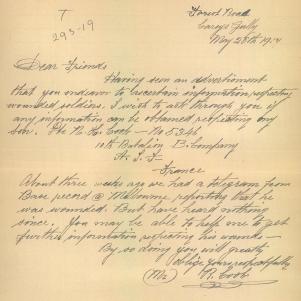 T
293-19
Forest Road
Careys Gully
May 28th 19
Dear Friends
Having seen an advertisment
that you endeavor to ascertain information respecting
wounded soldiers. I wish to ask through you if
any information can be obtained respecting my
Son. Pte H. Cook - No 5346
10th Batalion B. Company
A. I. F
France
About three weeks ago we had a telegram from
Base record @ Melbourne reporting that he
was wounded. But have heard nothing
since. You may be able to help me to get
further information respecting his wounds
By so doing you will greatly
oblige yours respectfully
R. Cook